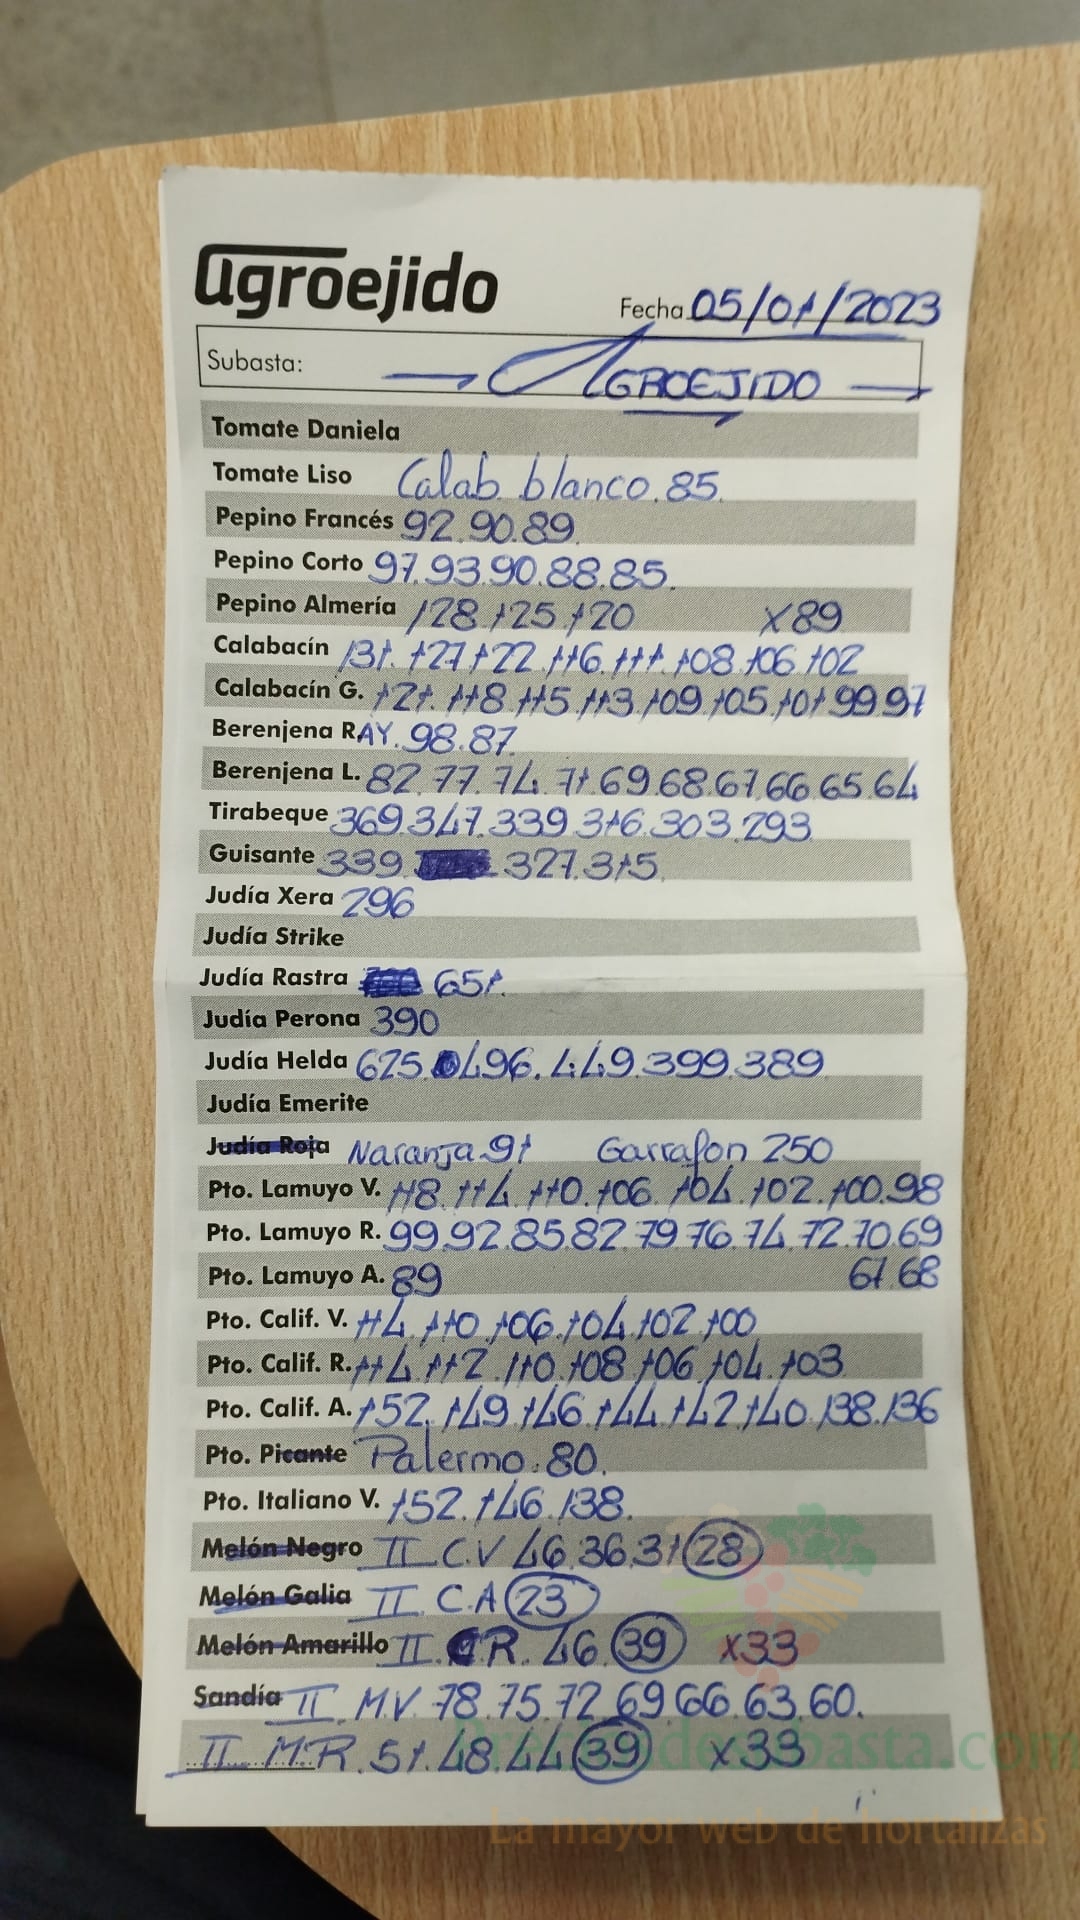 agroejido
Fecha 05/01/2023
Subasta: AGROEJIDO
Tomate Daniela
Tomate Liso Calab blanco. 85.
Pepino Francés 92.90.89.
Pepino Corto 97.93.90.88.85.
Pepino Almería 128.125.120 x89
Calabacín 131.127.122.116.111.108.106.102
Calabacín G. 121.118.115.113.109.105.101.99.97
Berenjena RAY. 98.87.
Berenjena L. 82.77.74.71.69.68.67.66.65.64
Tirabeque 369.347.339.316.303.293
Guisante 339. 327.315.
Judía Xera 296
Judía Strike
Judía Rastra 651.
Judía Perona 390
Judía Helda 625. 496. 449.399.389
Judía Emerite
Judía Roja Naranja 91 Garrafon 250
Pto. Lamuyo V. 118.114.110.106.104.102.100.98
Pto. Lamuyo R. 99.92.85.82.79.76.74.72.70.69
Pto. Lamuyo A. 89 67.68
Pto. Calif. V. 114.110.106.104.102.100
Pto. Calif. R. 114.112.110.108.106.104.103
Pto. Calif. A. 152.149.146.144.142.140.138.136
Pto. Picante Palermo. 80.
Pto. Italiano V. 152.146.138.
Melón Negro II C.V 46.36.31 28
Melón Galia II C.A 23
Melón Amarillo II. CR. 46. 39 x33
Sandía II M.V. 78.75.72.69.66.63.60.
II M.R. 51.48.44 39 x33
La mayor web de hortalizas